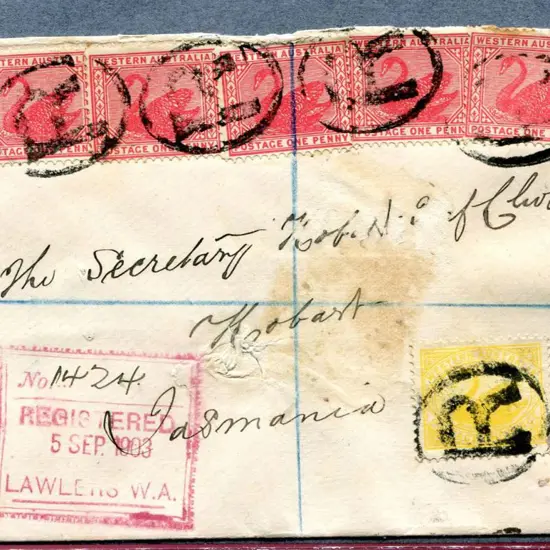 WESTERN AUSTRALIA
POSTAGE ONE PENNY
WESTERN AUSTRALIA
POSTAGE ONE PENNY
WESTERN AUSTRALIA
POSTAGE ONE PENNY
WESTERN AUSTRALIA
POSTAGE ONE PENNY
WESTERN AUS
POSTAGE ONE
R
R
R
R
The Secretary Hob. of
Hobart
Tasmania
No. 1424
REGISTERED
5 SEP. 1903
LAWLERS W.A.
R